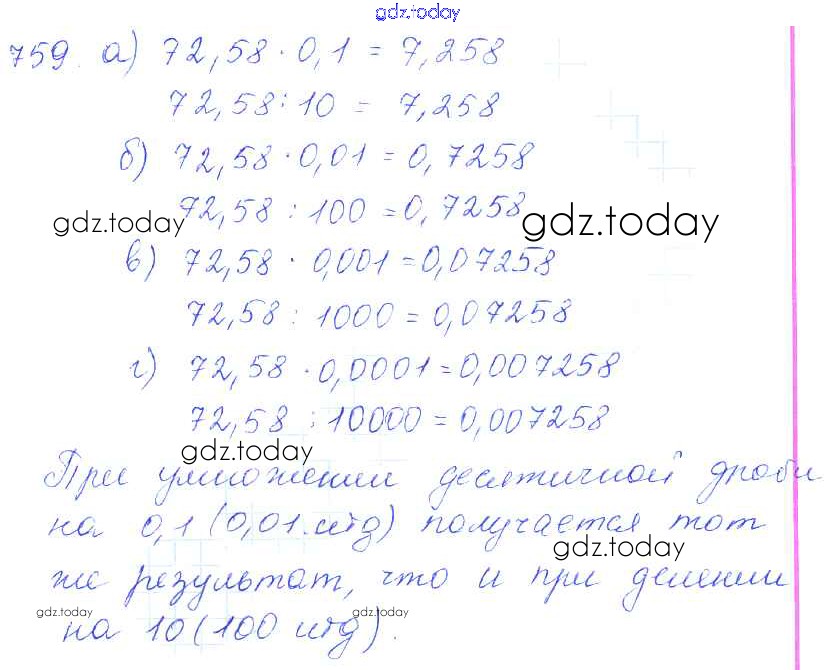 gdz.today
759. а) 72,58 · 0,1 = 7,258
72,58 : 10 = 7,258
б) 72,58 · 0,01 = 0,7258
72,58 : 100 = 0,7258
gdz.today
gdz.today
в) 72,58 · 0,001 = 0,07258
72,58 : 1000 = 0,07258
г) 72,58 · 0,0001 = 0,007258
72,58 : 10000 = 0,007258
gdz.today
При умножении десятичной дроби
на 0,1 (0,01.итд) получается тот
gdz.today
же результат, что и при делении
gdz.today
gdz.today
на 10 (100 итд).